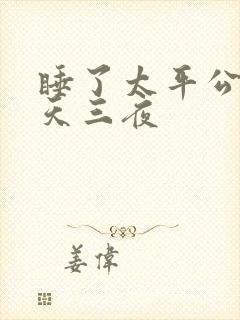 睡了太平公
天三夜
姜偉